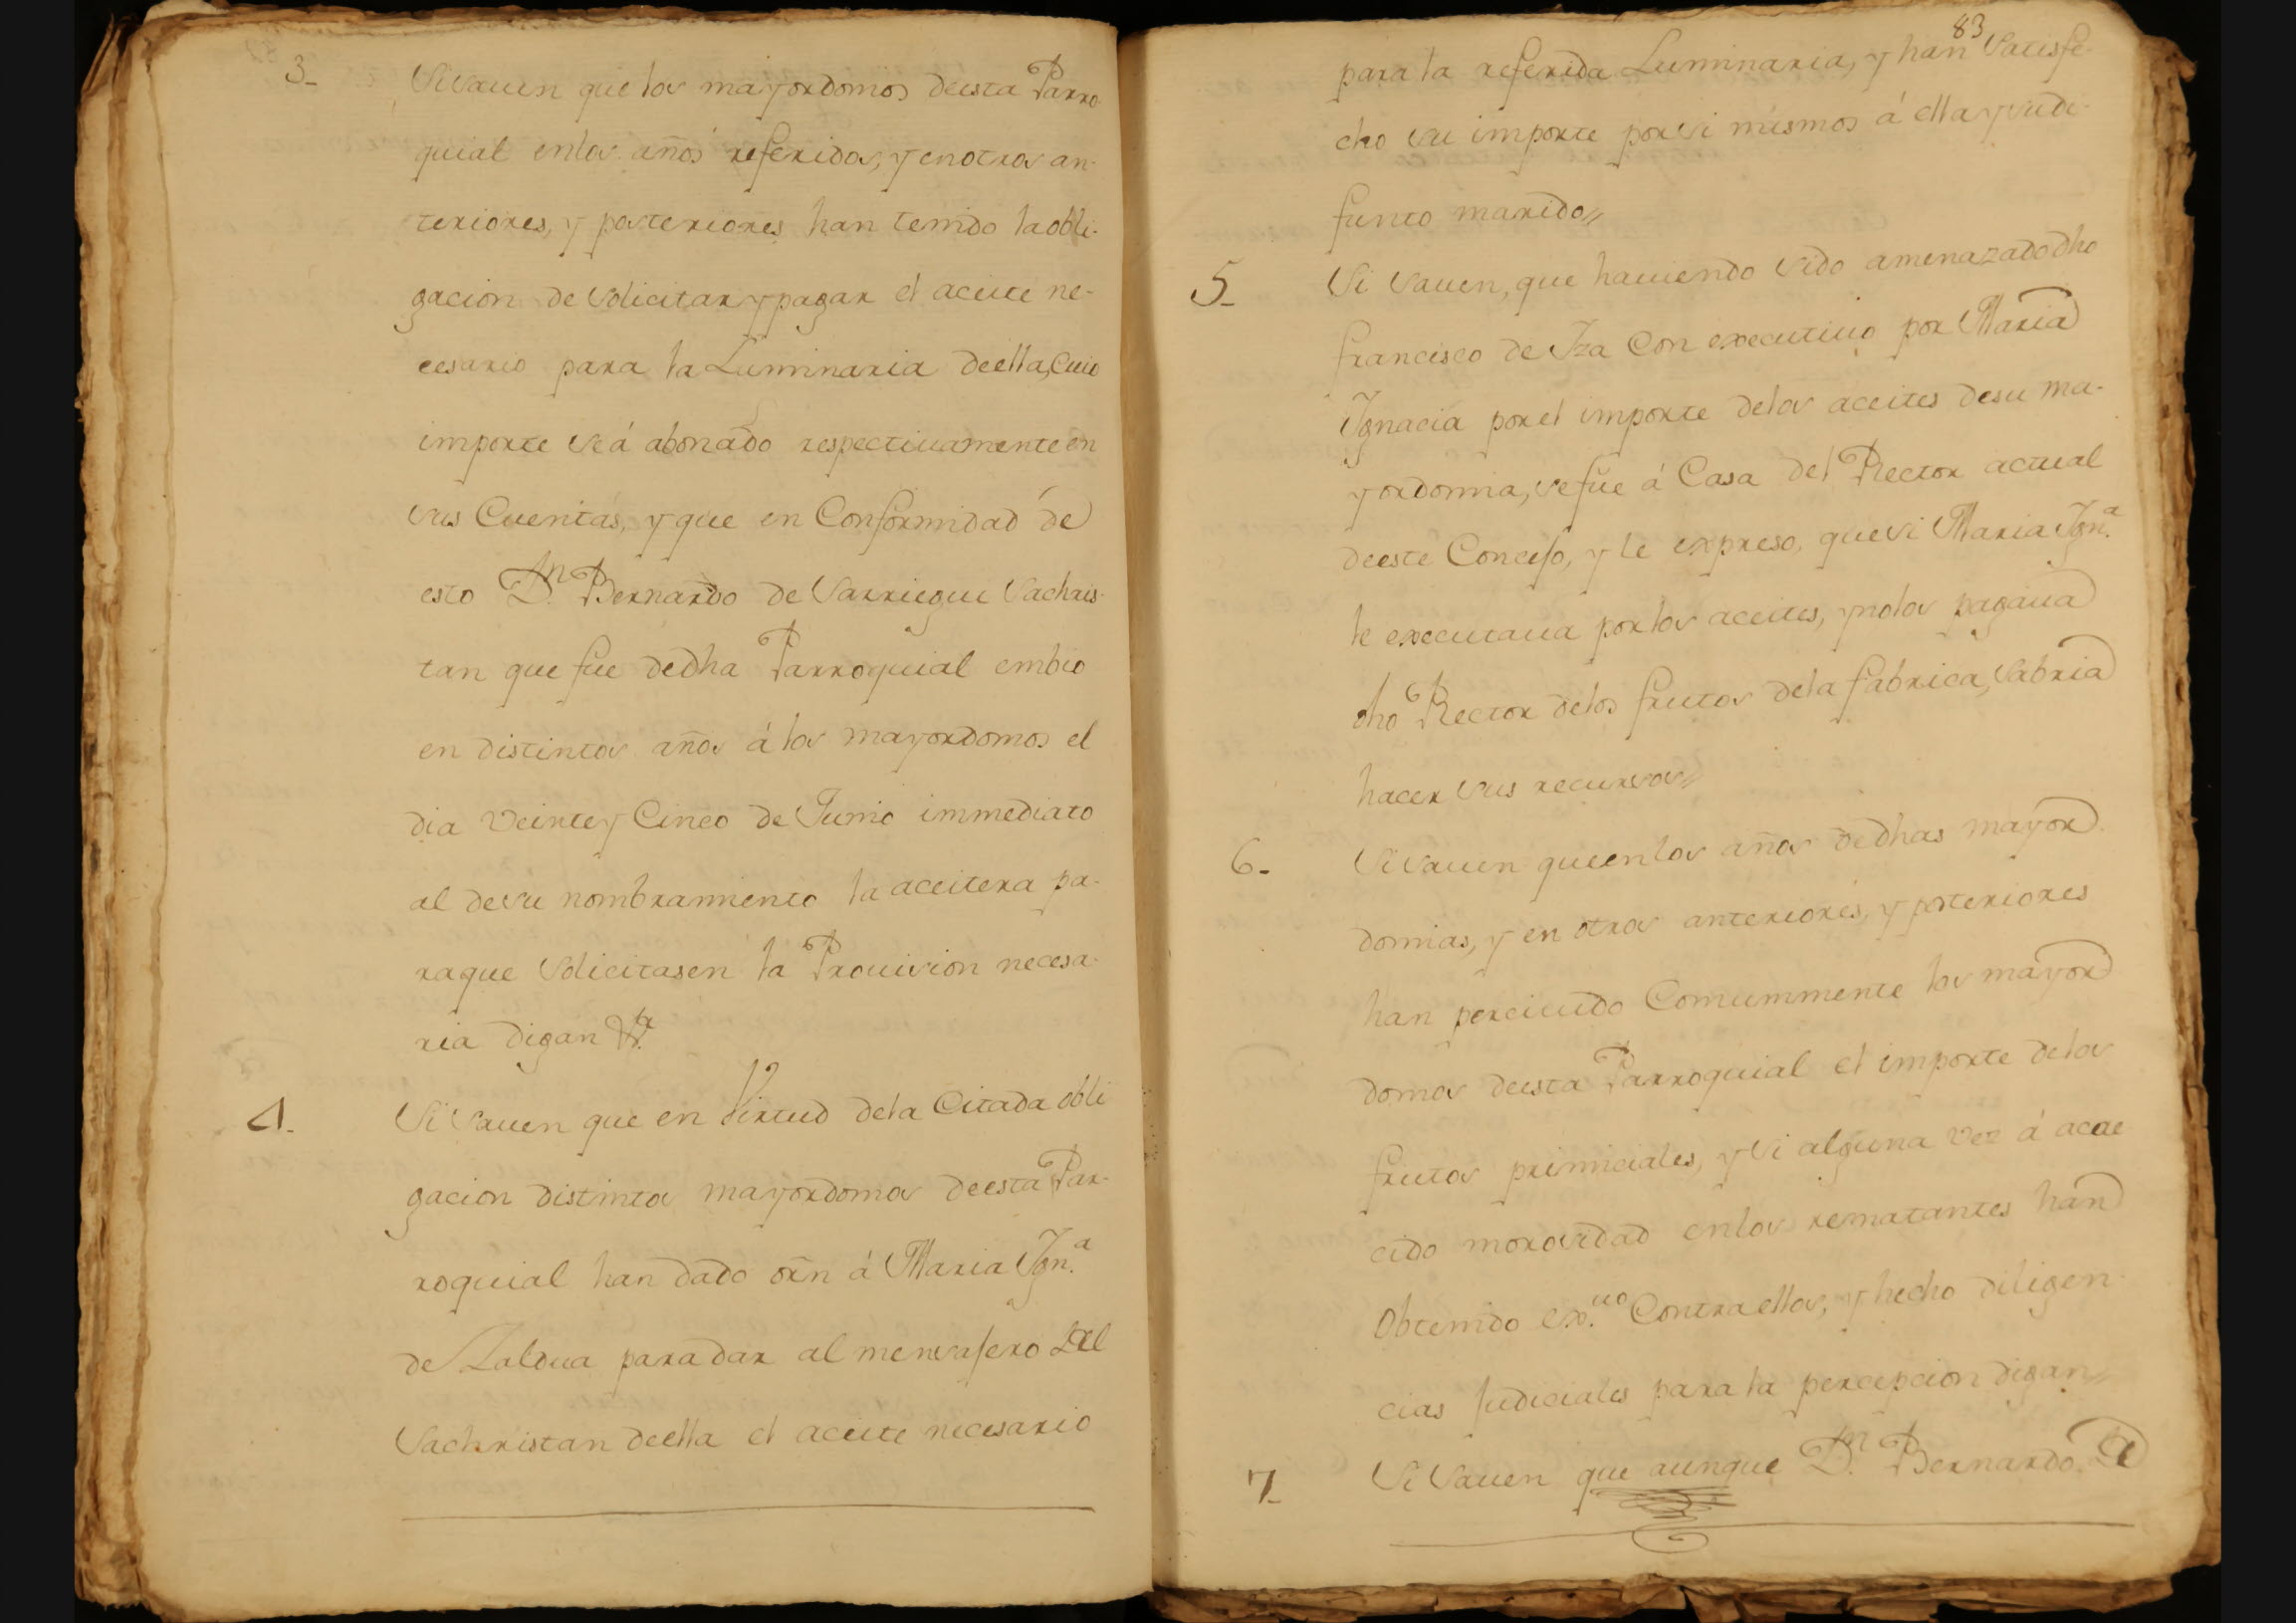 3_
Si sauen que los mayordomos deesta Parro-
quial enlos años referidos, y enotros an-
teriores, y posteriores han tenido la obli-
gacion de solicitar y pagar el aceite ne-
cesario para la Luminaria deella, Cuio
importe se á abonado respectiuamente en
sus Cuentas, y que en Conformidad de
esto Dn. Bernardo de Sarriegui Sachris-
tan que fue dedha Parroquial embio
en distintos años á los mayordomos el
dia Veinte y Cinco de Junio immediato
al desu nombramiento la aceitera pa-
raque solicitasen la Prouision necesa-
ria digan &a.
4.
Si sauen que en Virtud dela Citada obli
gacion distintos mayordomos deesta Par-
roquial han dado orn á Maria Ign.a
de Zaldua para dar al mensajero del
Sachristan deella el aceite necesario
83
para la referida Luminaria, y han satisfe-
cho su importe porsi mismos á ella y sudi-
funto marido//
5_
Si sauen, que hauiendo sido amenazado dho
francisco de Iza Con executiuo por Maria
Ignacia por el importe delos aceites desu ma-
yordomia, sefue á Casa del Rector actual
deeste Concejo, y le expreso, quesi Maria Ign.a
le executaua por los aceites, ynolos pagaua
dho Rector delos frutos dela fabrica, sabria
hacer sus recursos//
6.
Si sauen queenlos años dedhas mayor
domias, y en otros anteriores, y posteriores
han perciuido Comummente los mayor
domos deesta Parroquial el importe delos
frutos primiciales, y si alguna Vez á acae
cido morosidad enlos rematantes han
Obtenido ex.uo Contra ellos, y hecho diligen-
cias Judiciales para la percepcion digan//
7_
Si Sauen que aunque Dn. Bernardo